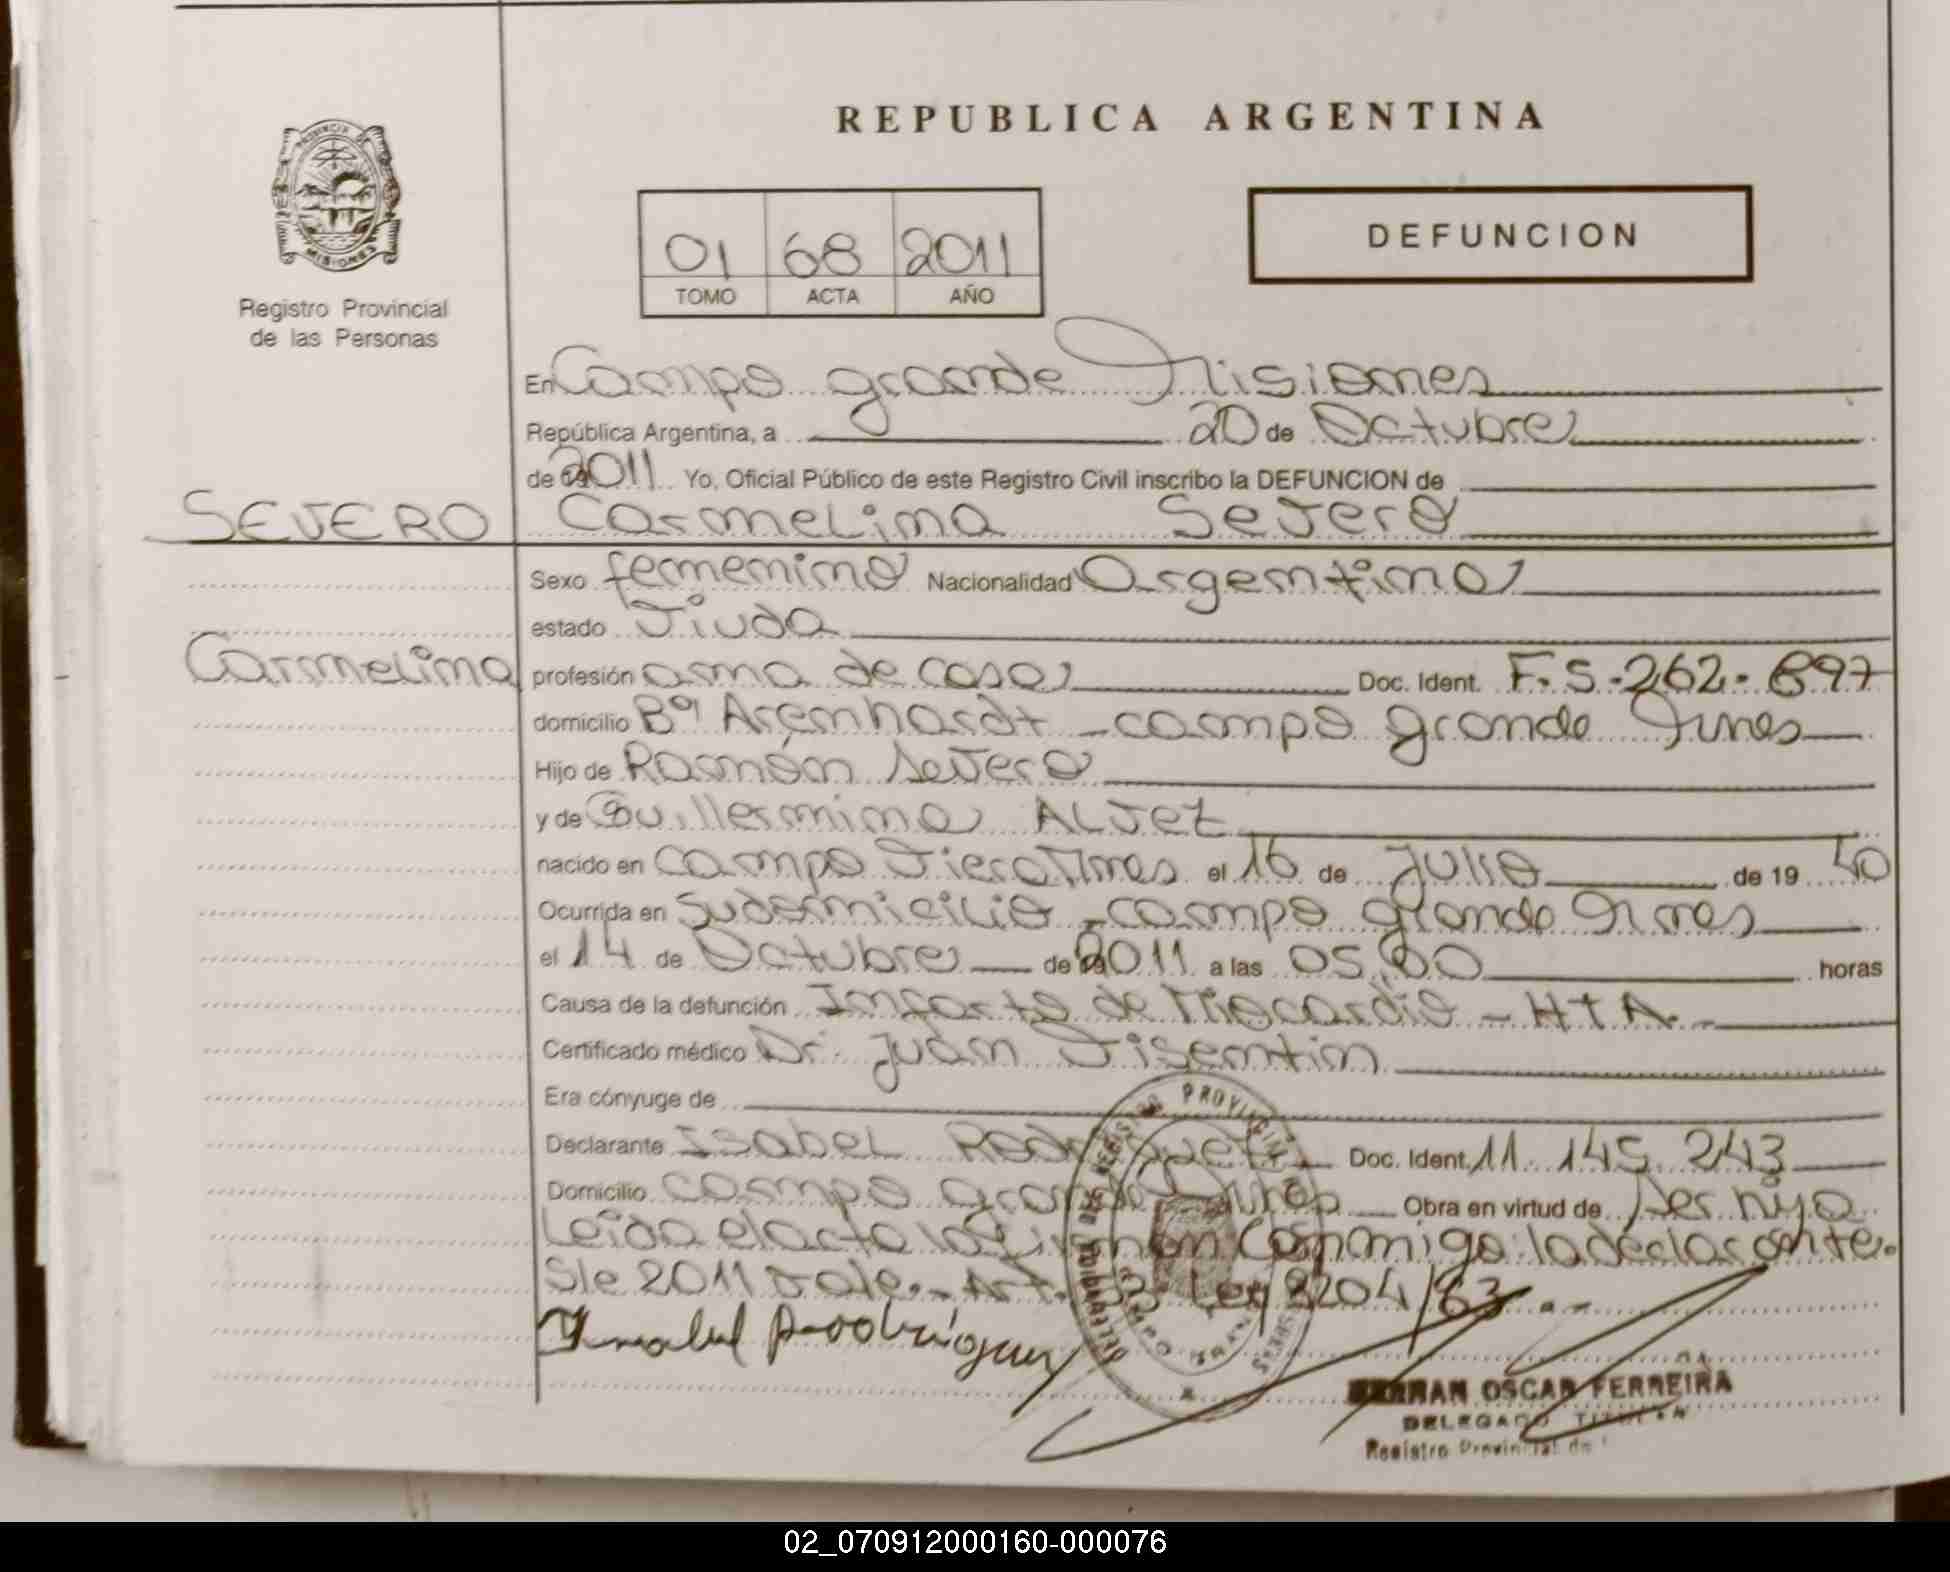 REPUBLICA ARGENTINA
PROVINCIA DE MISIONES
Registro Provincial
de las Personas
01 68 2011
TOMO ACTA AÑO
DEFUNCION
En Campo grande Misiones
República Argentina, a 20 de Octubre
de 2011 Yo, Oficial Público de este Registro Civil inscribo la DEFUNCION de
SEVERO
Carmelina Severo
Sexo femenino Nacionalidad Argentina
estado Viuda
Carmelina
profesión ama de casa Doc. Ident. F.5.262.897
domicilio Bº Arenhardt - campo grande Mnes
Hijo de Ramón Severo
y de Guillermina ALvez
nacido en Campo Viera Mnes el 16 de Julio de 19 40
Ocurrida en Su domicilio - campo grande Mnes
el 14 de Octubre de 2011 a las 05,00 horas
Causa de la defunción Infarto de Miocardio - HTA.-
Certificado médico Dr. Juan Visentin
Era cónyuge de
Declarante Isabel Rodriguez Doc. Ident. 11.145.243
Domicilio campo grande Mnes Obra en virtud de Ser hija
Leida el acta la firman Conmigo la declarante.
S/e 2011 vale.- Art. Ley 8204/63.-
Isabel Rodriguez
OSCAR FERREIRA
DELEGADO TITULAR
Registro Provincial de
02_070912000160-000076